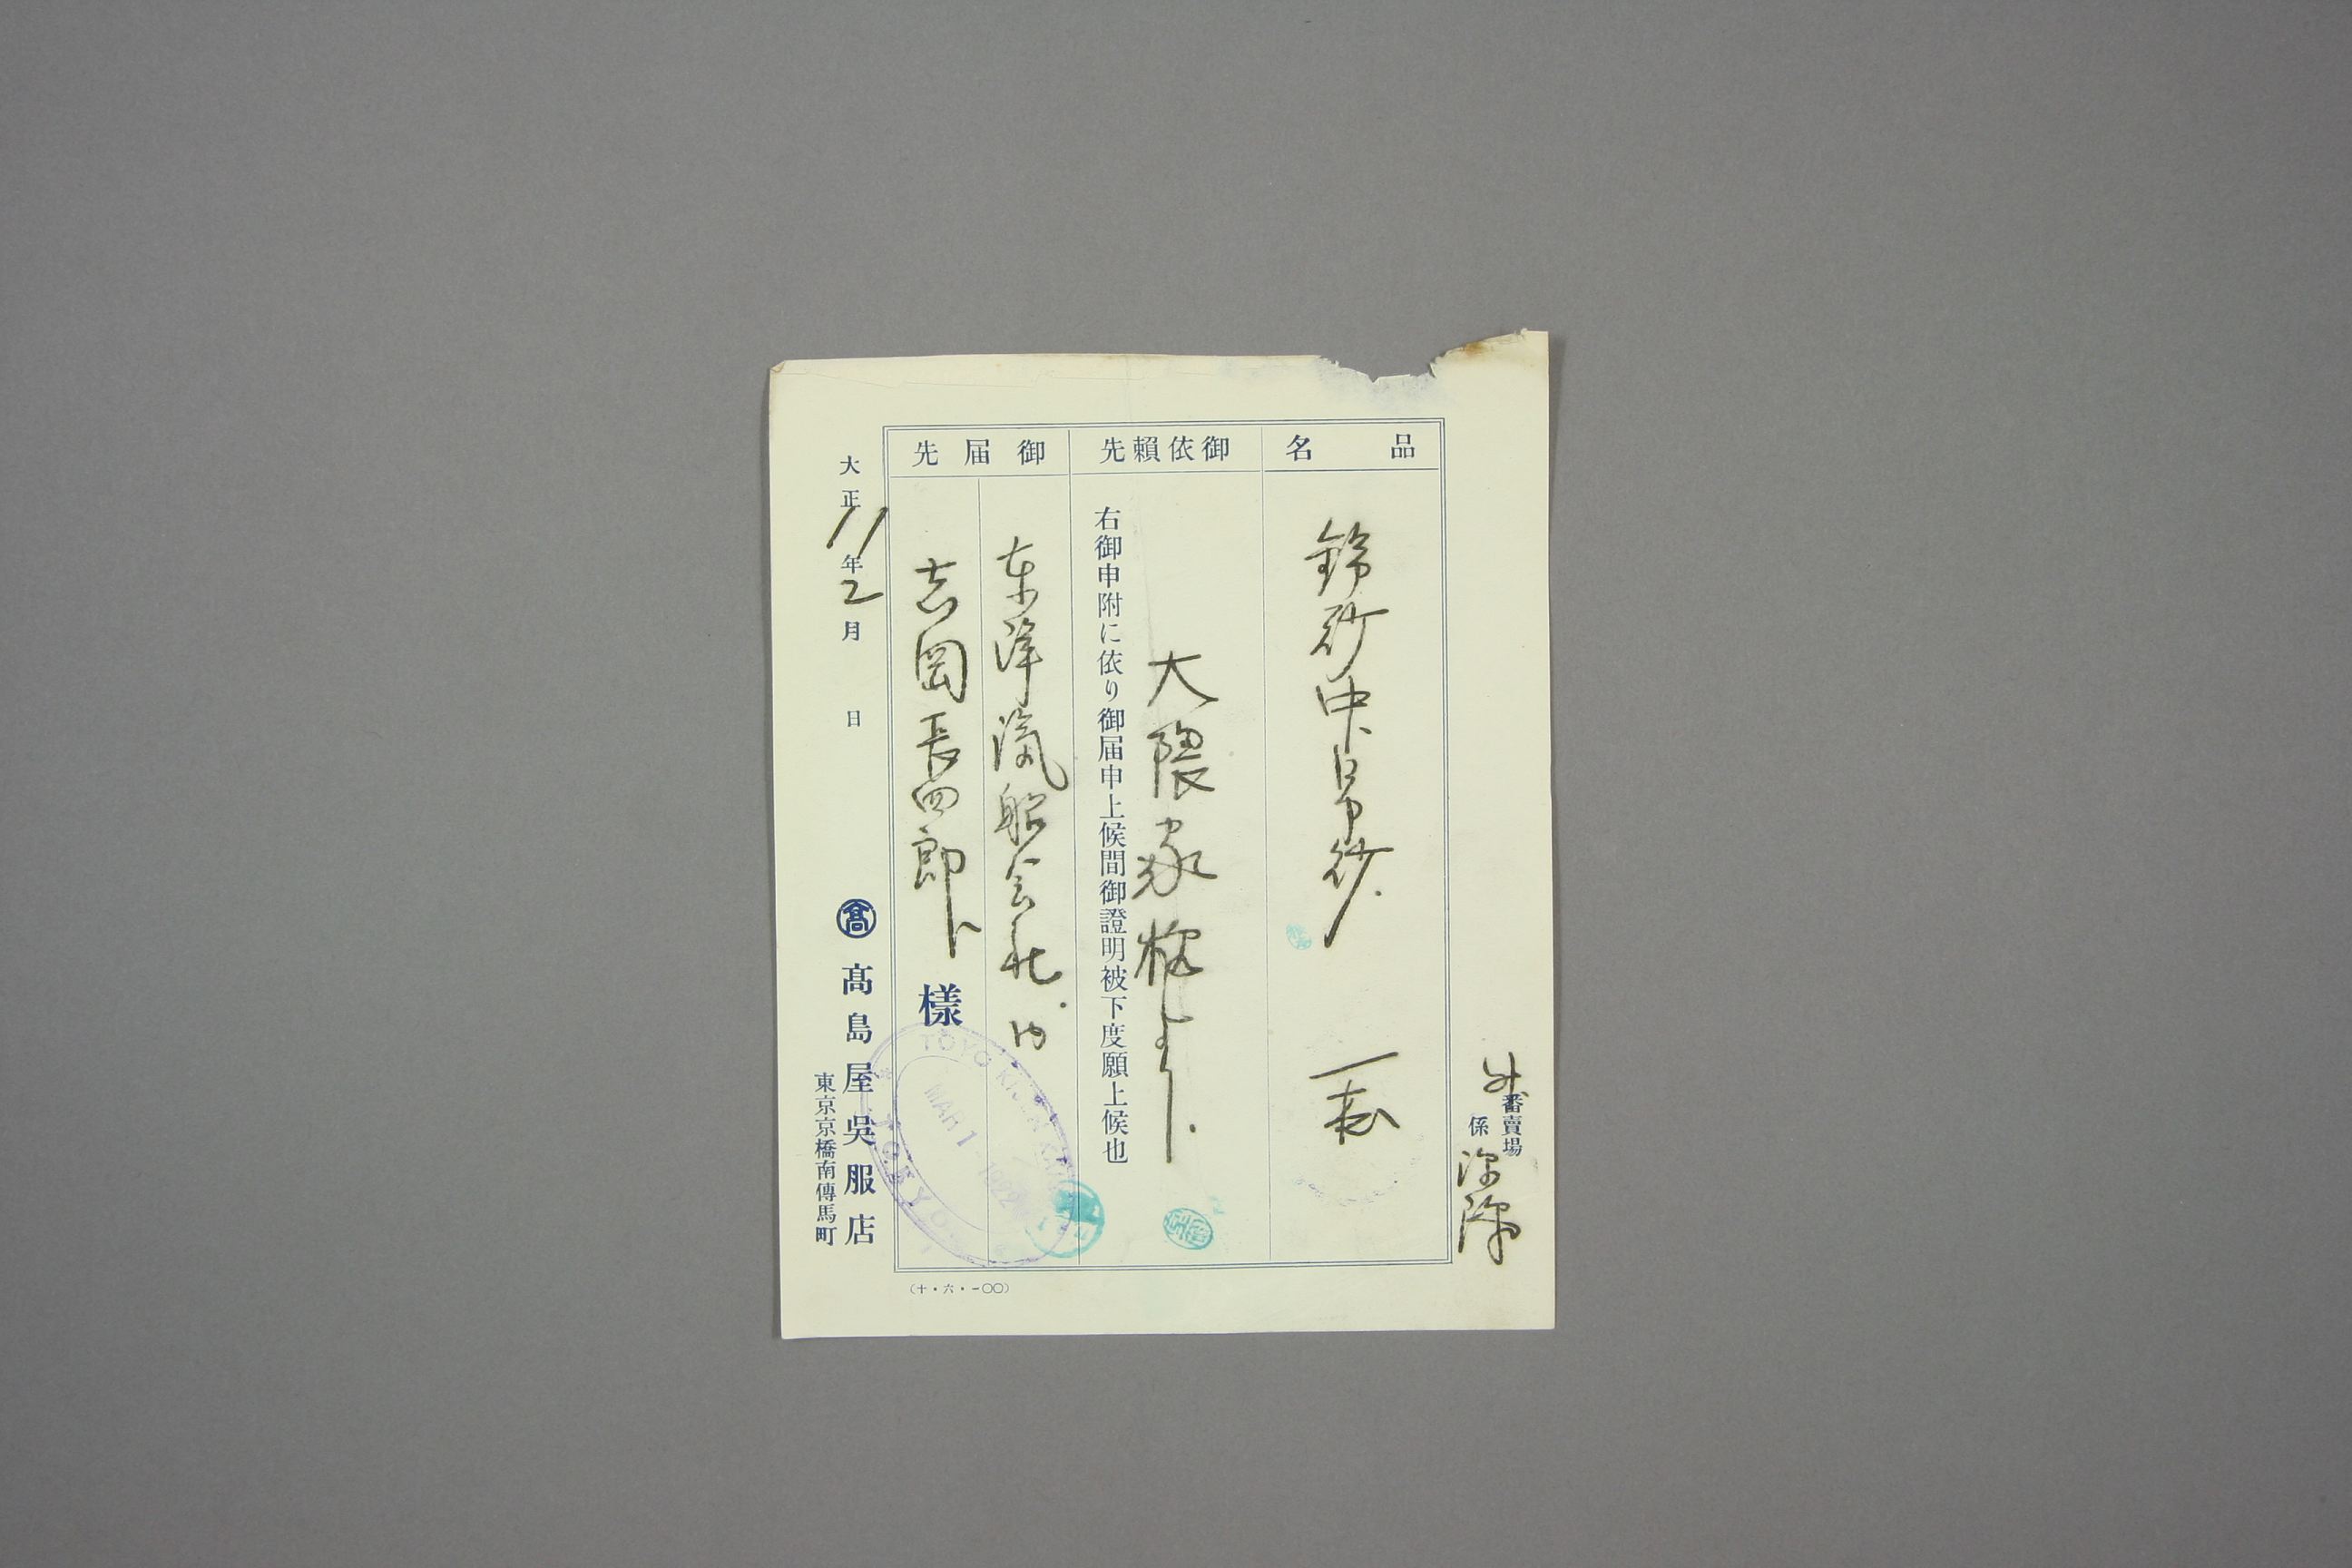 番賣場
係
品名
一表
御依賴先
大隈家様より
右御申附に依り御届申上候間御證明被下度願上候也
御届先
東洋汽船会社内
吉岡長四郎様
大正11年2月 日
髙
髙島屋呉服店
東京京橋南傳馬町
(十・六・一〇〇)
TOYO KISEN KAISHA
MAR 1 1922
TOKYO